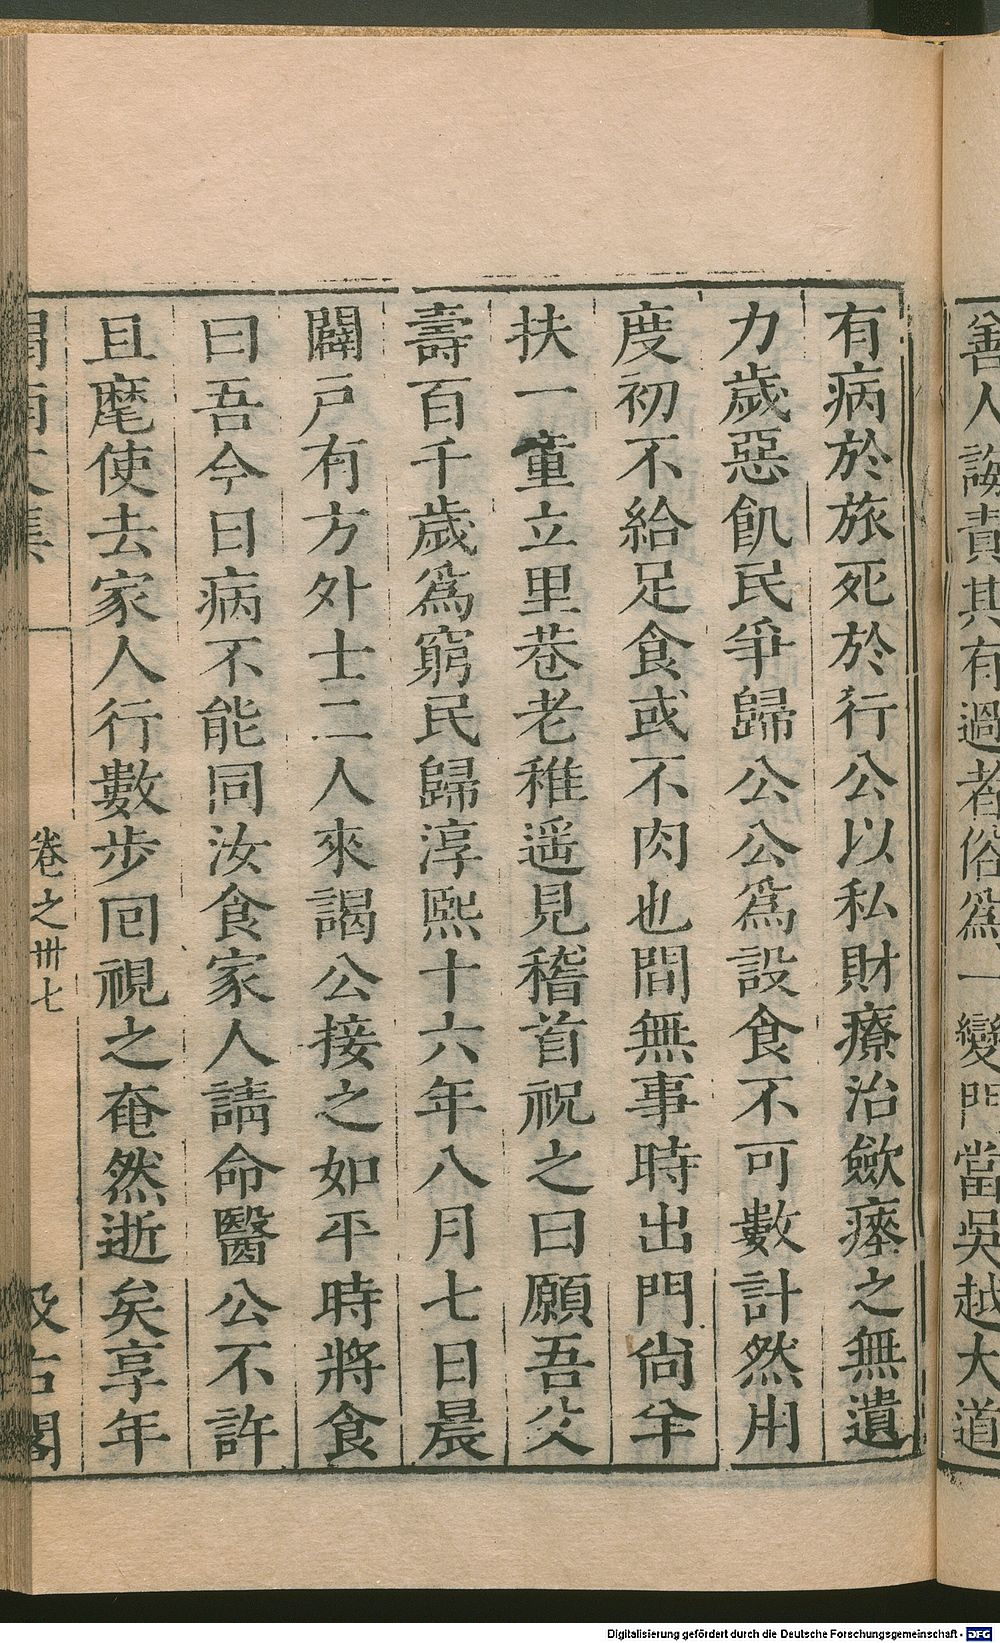 善人誨責其有過者俗爲一變門當吳越大道
有病於旅死於行公以私財療治斂瘞之無遺
力歲惡飢民爭歸公公爲設食不可數計然用
度初不給足食或不肉也間無事時出門尙羊
扶一童立里巷老稚遥見稽首祝之曰願吾父
壽百千歲爲窮民歸淳熙十六年八月七日晨
闢戸有方外士二人來謁公接之如平時將食
曰吾今日病不能同汝食家人請命醫公不許
且麾使去家人行數步囘視之奄然逝矣享年
渭南文集 卷之卌七 汲古閣
Digitalisierung gefördert durch die Deutsche Forschungsgemeinschaft - DFG